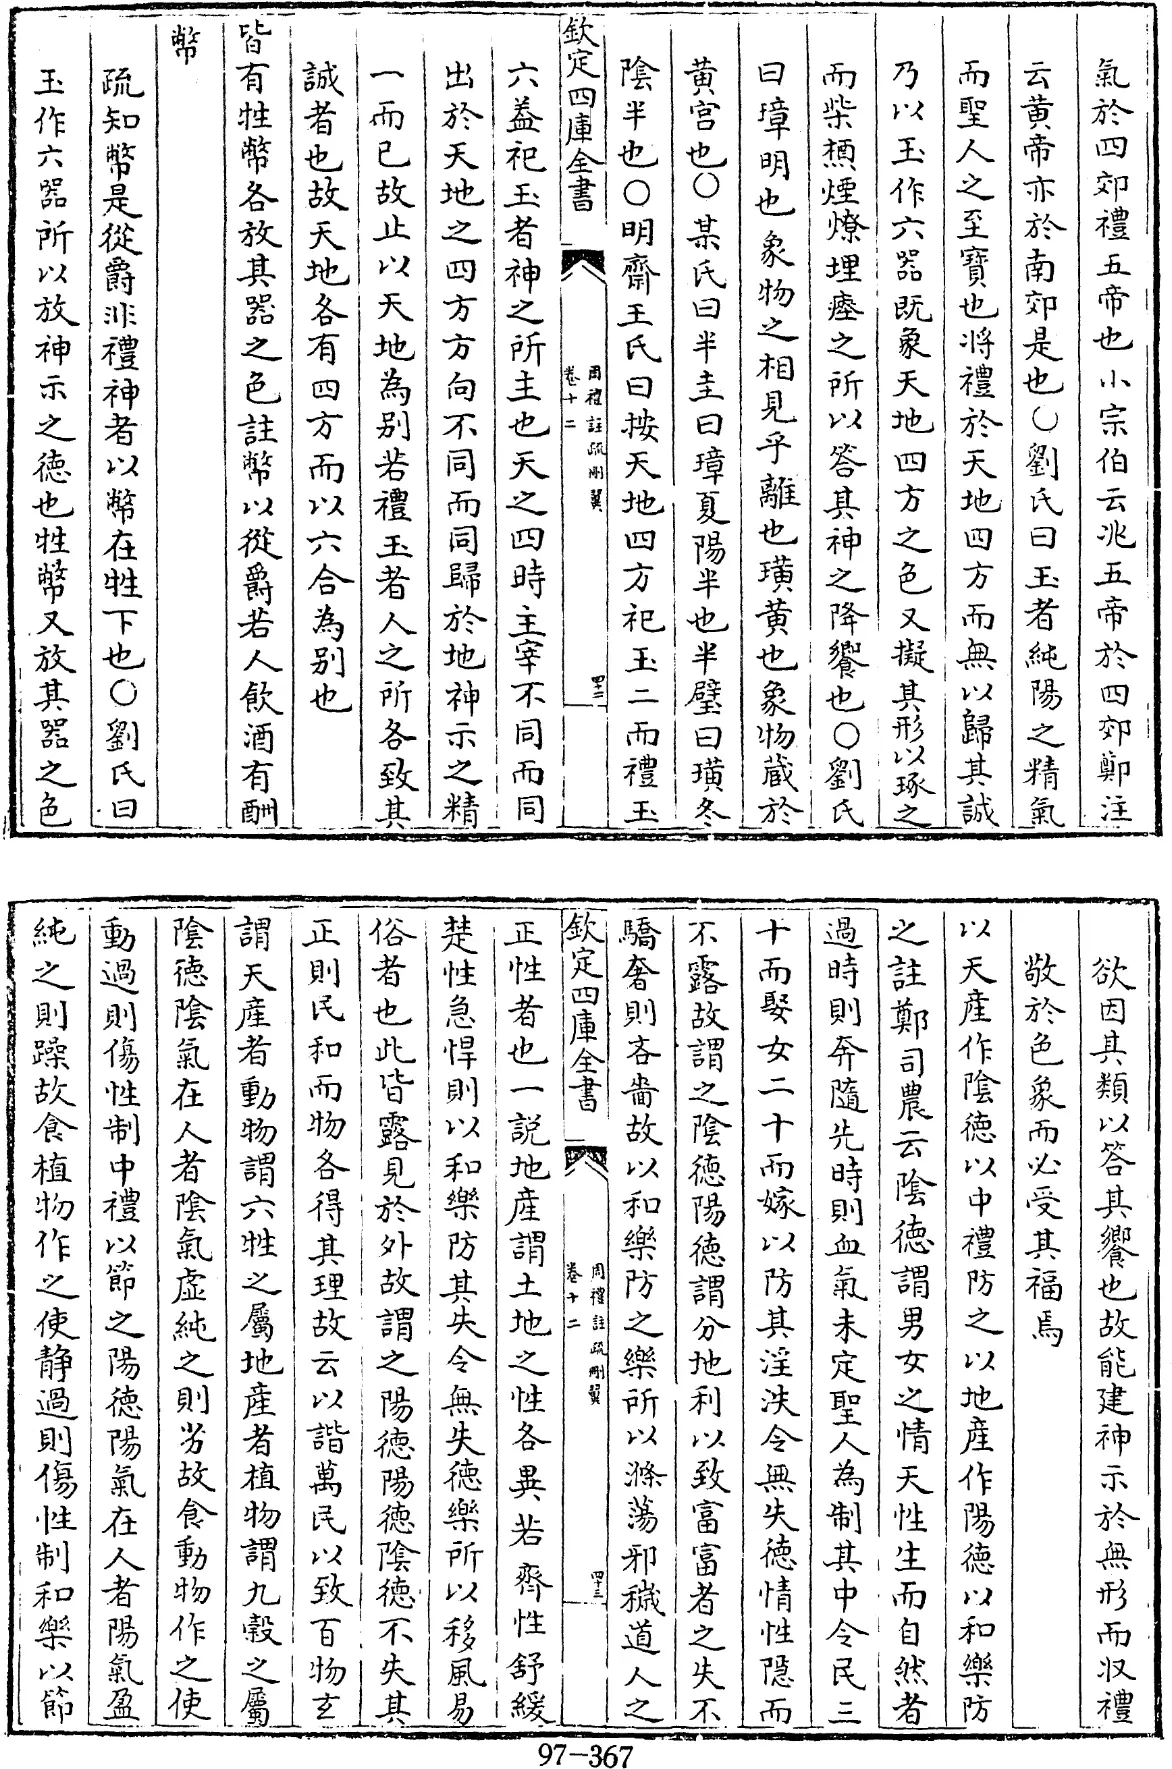 氣於四郊禮五帝也小宗伯云兆五帝於四郊鄭注
云黄帝亦於南郊是也○劉氏曰玉者純陽之精氣
而聖人之至寳也将禮於天地四方而無以歸其誠
乃以玉作六器既象天地四方之色又擬其形以琢之
而柴槱煙燎埋瘞之所以答其神之降饗也○劉氏
曰璋明也象物之相見乎離也璜黄也象物蔵於
黄宫也○某氏曰半圭曰璋夏陽半也半璧曰璜冬
陰半也○明齋王氏曰按天地四方祀玉二而禮玉
欽定四庫全書
周禮註疏刪翼
卷十二
四十二
六葢祀玉者神之所主也天之四時主宰不同而同
出於天地之四方方向不同而同歸於地神示之精
一而已故止以天地為别若禮玉者人之所各致其
誠者也故天地各有四方而以六合為别也
皆有牲幣各放其器之色註幣以從爵若人飲酒有酬
幣
疏知幣是從爵非禮神者以幣在牲下也○劉氏曰
玉作六器所以放神示之徳也牲幣又放其器之色
欲因其類以答其饗也故能建神示於無形而収禮
敬於色象而必受其福焉
以天産作陰徳以中禮防之以地産作陽徳以和樂防
之註鄭司農云陰徳謂男女之情天性生而自然者
過時則奔隨先時則血氣未定聖人為制其中令民三
十而娶女二十而嫁以防其淫泆令無失徳情性隱而
不露故謂之陰徳陽徳謂分地利以致富富者之失不
驕奢則吝嗇故以和樂防之樂所以滌蕩邪穢道人之
欽定四庫全書
周禮註疏刪翼
卷十二
四十三
正性者也一説地産謂土地之性各異若齊性舒緩
楚性急悍則以和樂防其失令無失徳樂所以移風易
俗者也此皆露見於外故謂之陽徳陽徳陰徳不失其
正則民和而物各得其理故云以諧萬民以致百物玄
謂天産者動物謂六牲之屬地産者植物謂九穀之屬
陰徳陰氣在人者陰氣虚純之則劣故食動物作之使
動過則傷性制中禮以節之陽徳陽氣在人者陽氣盈
純之則躁故食植物作之使静過則傷性制和樂以節
97-367